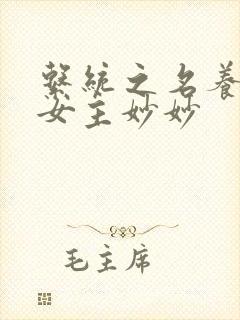 繫統之名養
女主妙妙
毛主席